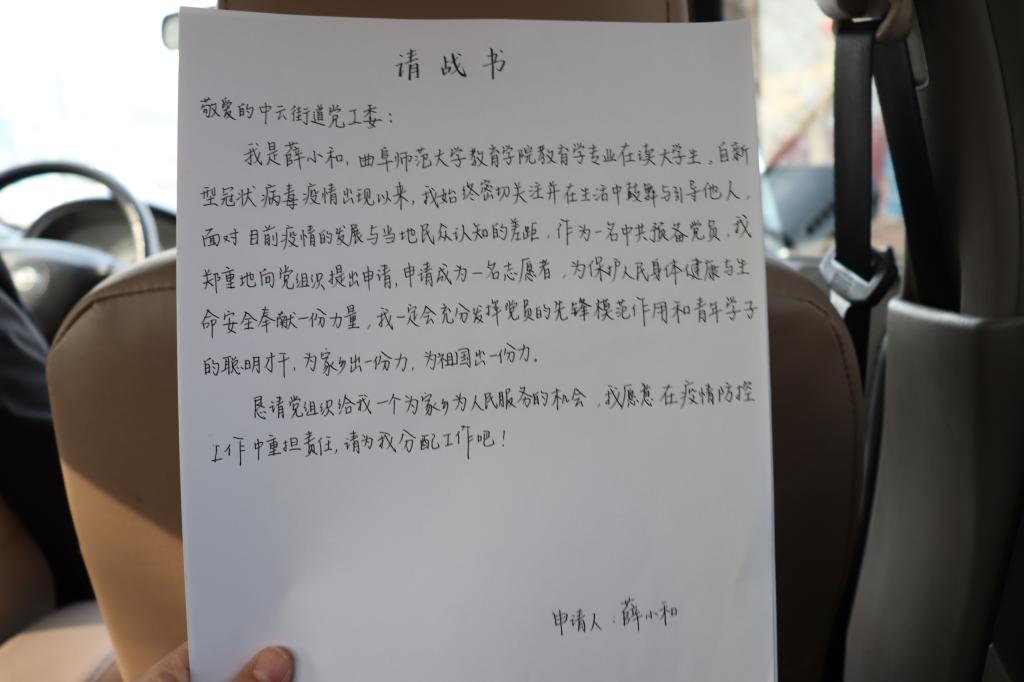 请战书
敬爱的中云街道党工委：
我是薛小和，曲阜师范大学教育学院教育学专业在读大学生。自新
型冠状病毒疫情出现以来，我始终密切关注并在生活中鼓舞与引导他人，
面对目前疫情的发展与当地民众认知的差距，作为一名中共预备党员，我
郑重地向党组织提出申请，申请成为一名志愿者，为保护人民身体健康与生
命安全奉献一份力量，我一定会充分发挥党员的先锋模范作用和青年学子
的聪明才干，为家乡出一份力，为祖国出一份力。
恳请党组织给我一个为家乡为人民服务的机会，我愿意在疫情防控
工作中重担责任，请为我分配工作吧！
申请人：薛小和